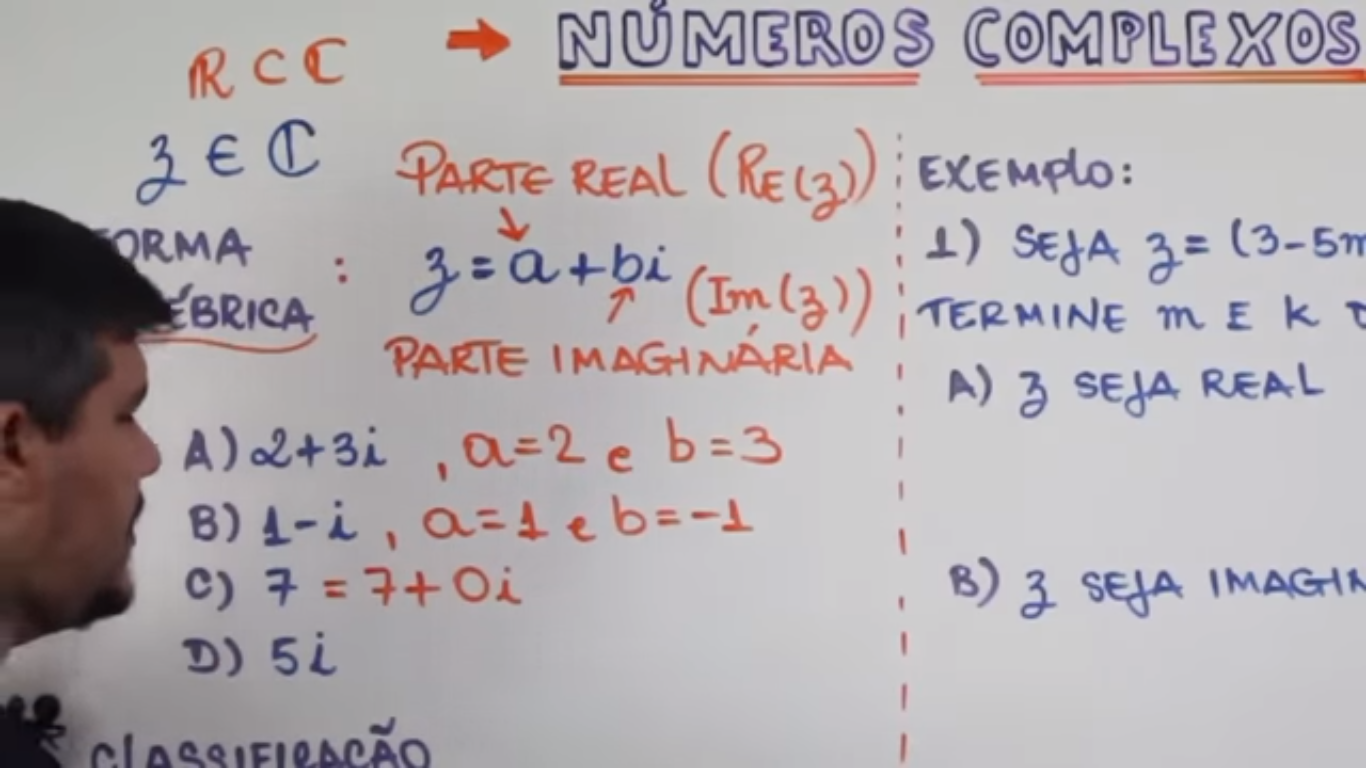 → NÚMEROS COMPLEXOS
ℝ ⊂ ℂ
z ∈ ℂ
PARTE REAL (Re(z))
z = a + bi
(Im(z))
PARTE IMAGINÁRIA
A) 2+3i , a=2 e b=3
B) 1-i , a=1 e b=-1
C) 7 = 7+0i
D) 5i
CLASSIFICAÇÃO
EXEMPLO:
1) SEJA z = (3-5m
TERMINE m E k
A) z SEJA REAL
B) z SEJA